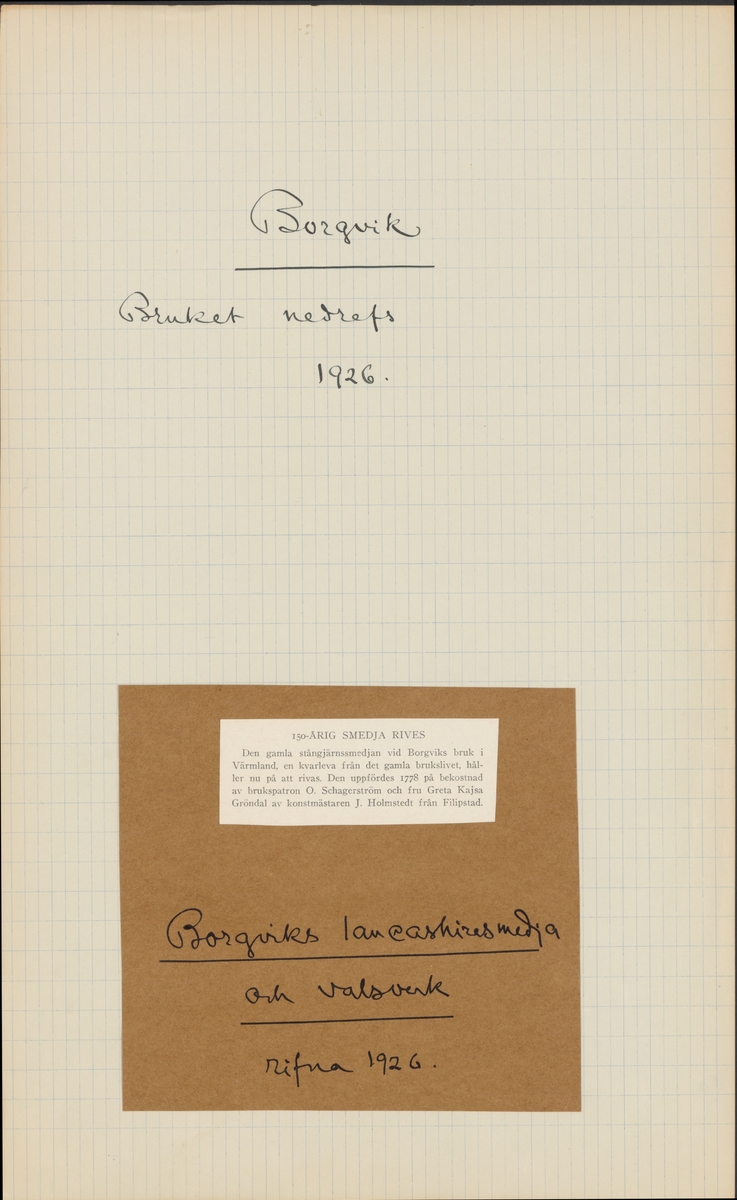 Borgvik
Bruket nedrefs
1926.
150-ÅRIG SMEDJA RIVES
Den gamla stångjärnssmedjan vid Borgviks bruk i
Värmland, en kvarleva från det gamla brukslivet, hål-
ler nu på att rivas. Den uppfördes 1778 på bekostnad
av brukspatron O. Schagerström och fru Greta Kajsa
Gröndal av konstmästaren J. Holmstedt från Filipstad.
Borgviks lancashiresmedja
och valsverk
rifna 1926.